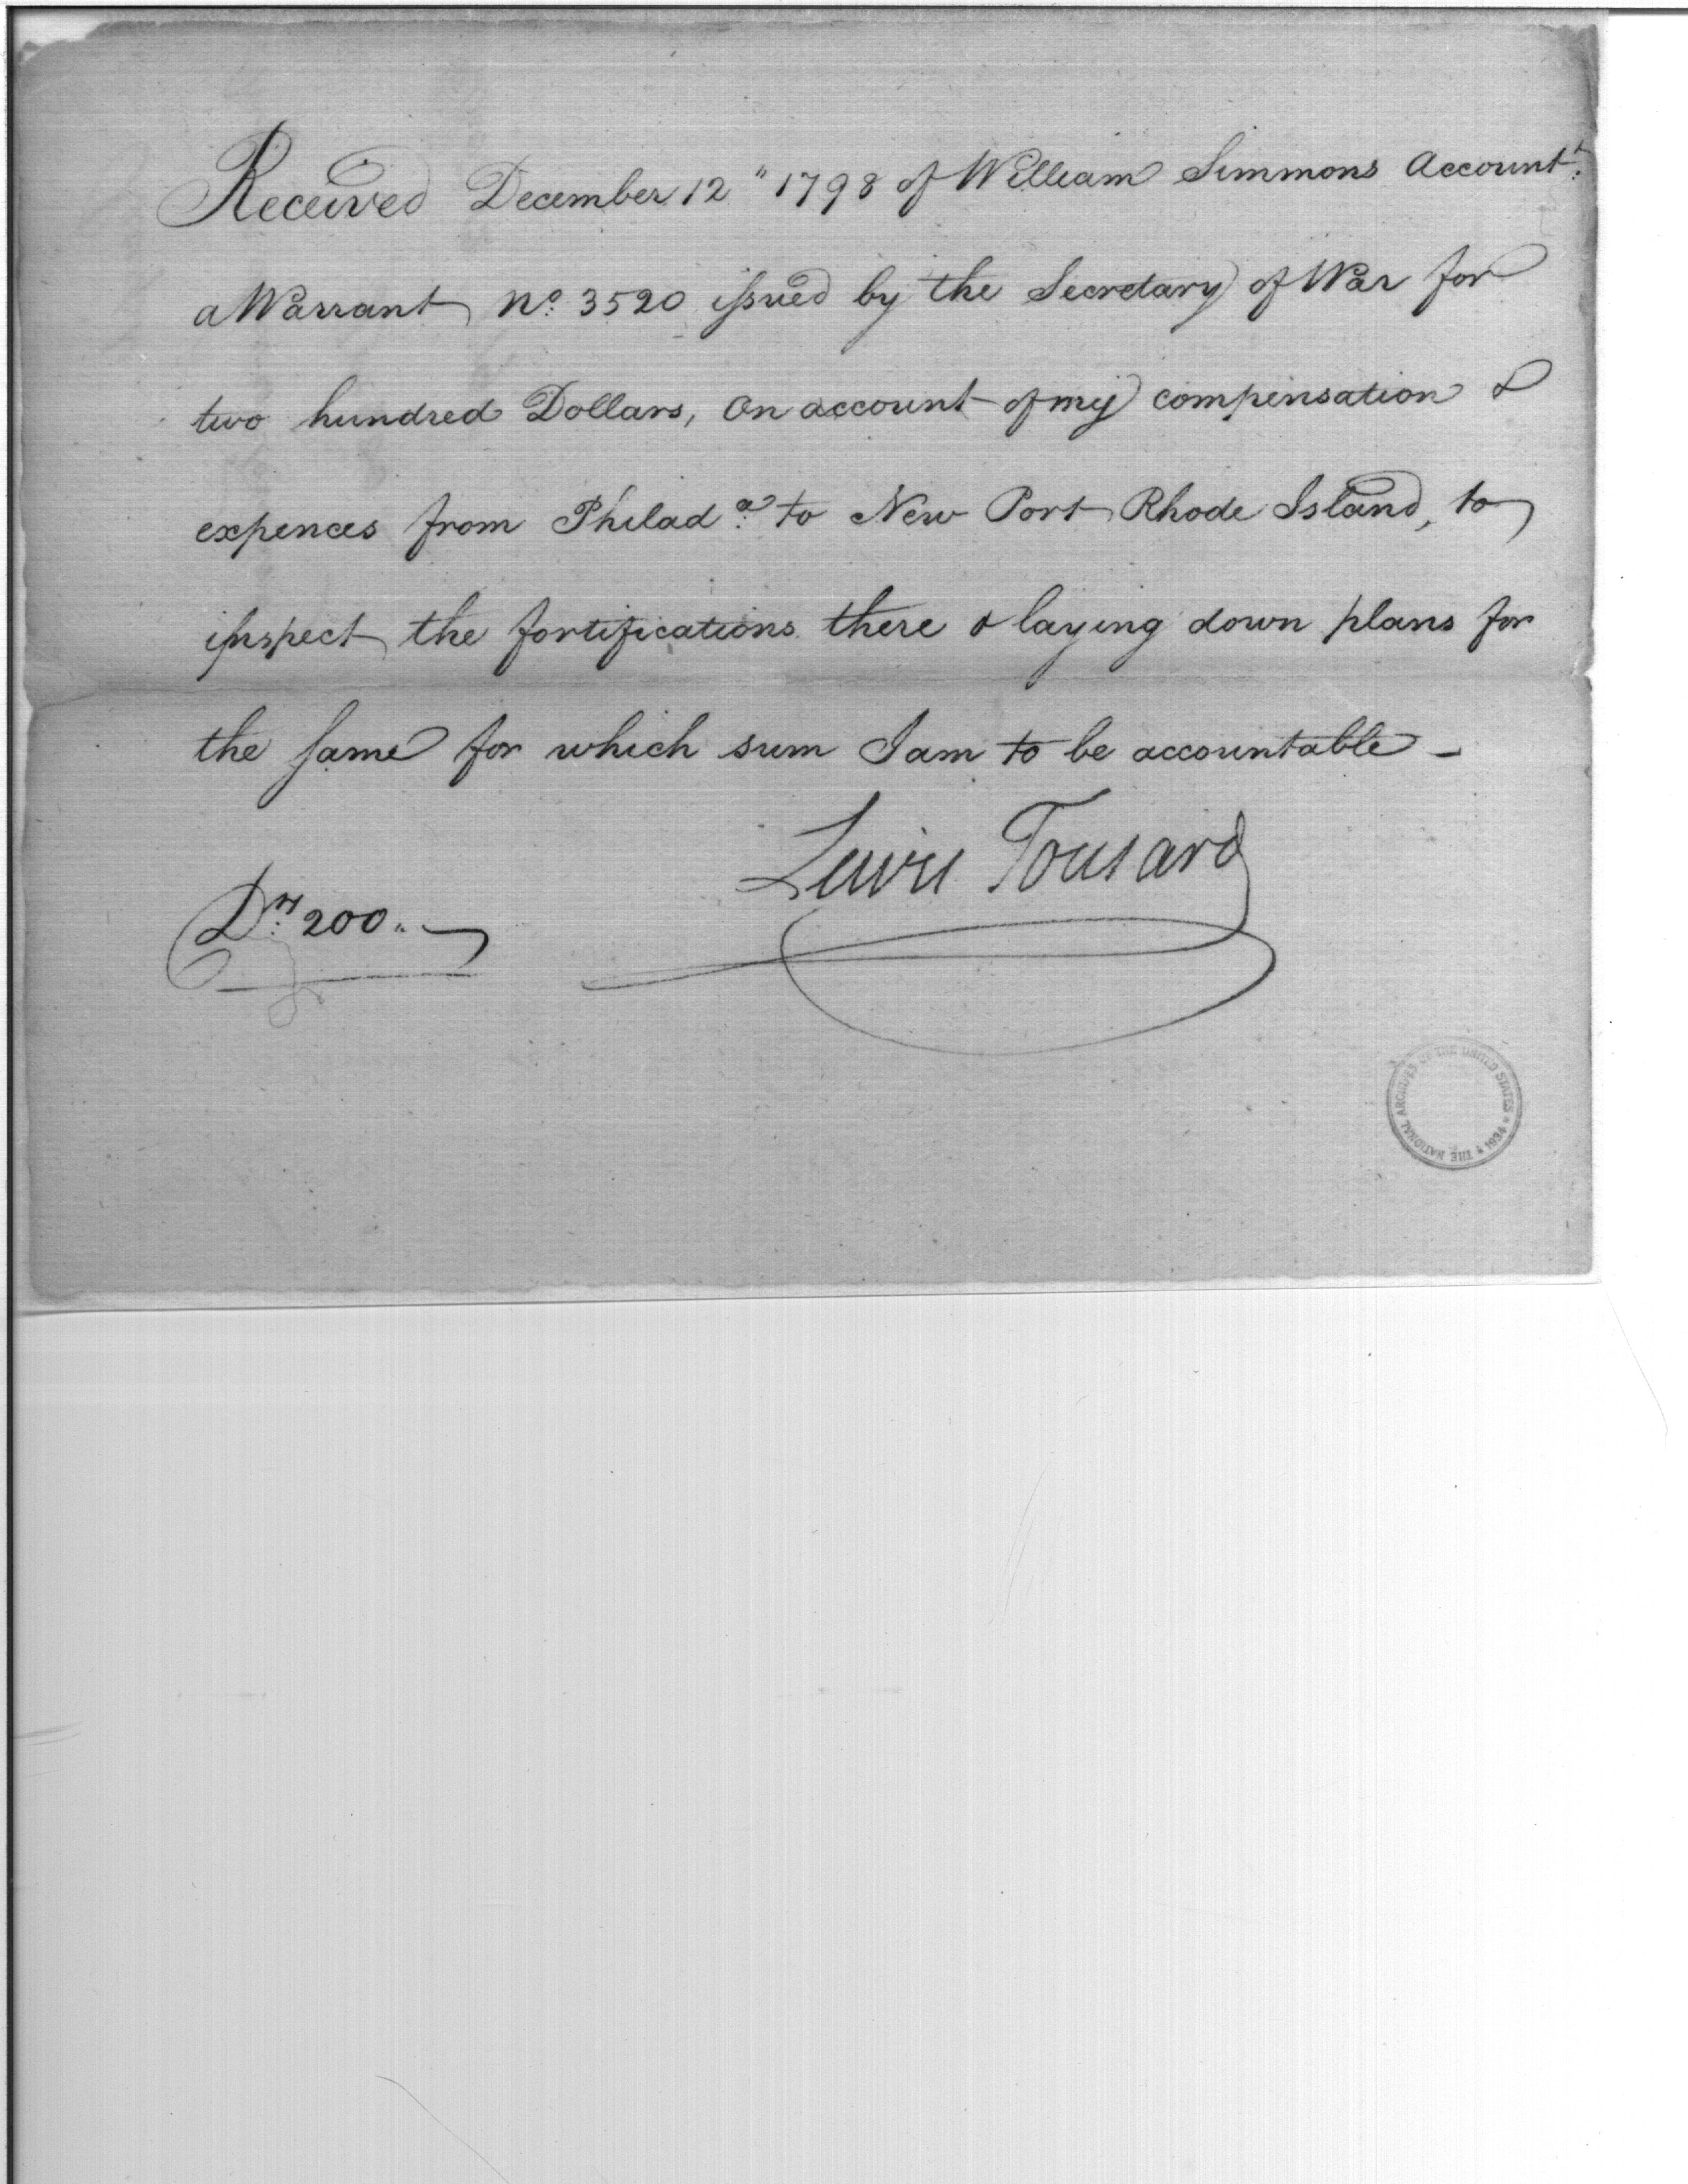 Received December 12 " 1798 of William Simmons Accountt.
a Warrant No. 3520 issued by the Secretary of War for
two hundred Dollars, On account of my compensation &
expences from Philada. to New Port Rhode Island, to
inspect the fortifications there & laying down plans for
the same for which sum I am to be accountable -
Lewis Tousard
Drs. 200..
THE NATIONAL ARCHIVES OF THE UNITED STATES * 1934 *